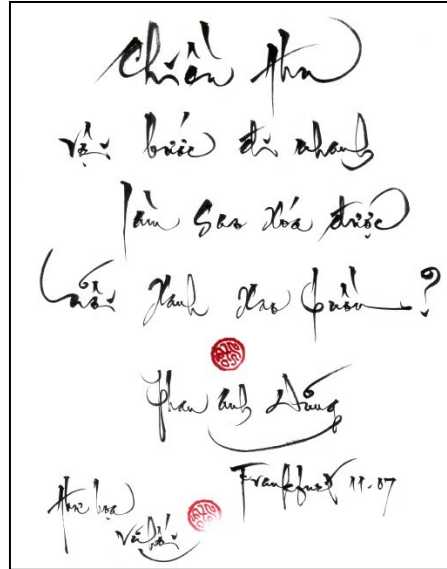 Chiều thu
vội bước đi nhanh
làm sao xóa được
nỗi xanh xao buồn?
Phan anh Dũng
Frankfurt 11.07
Thư họa
Vũ Hối